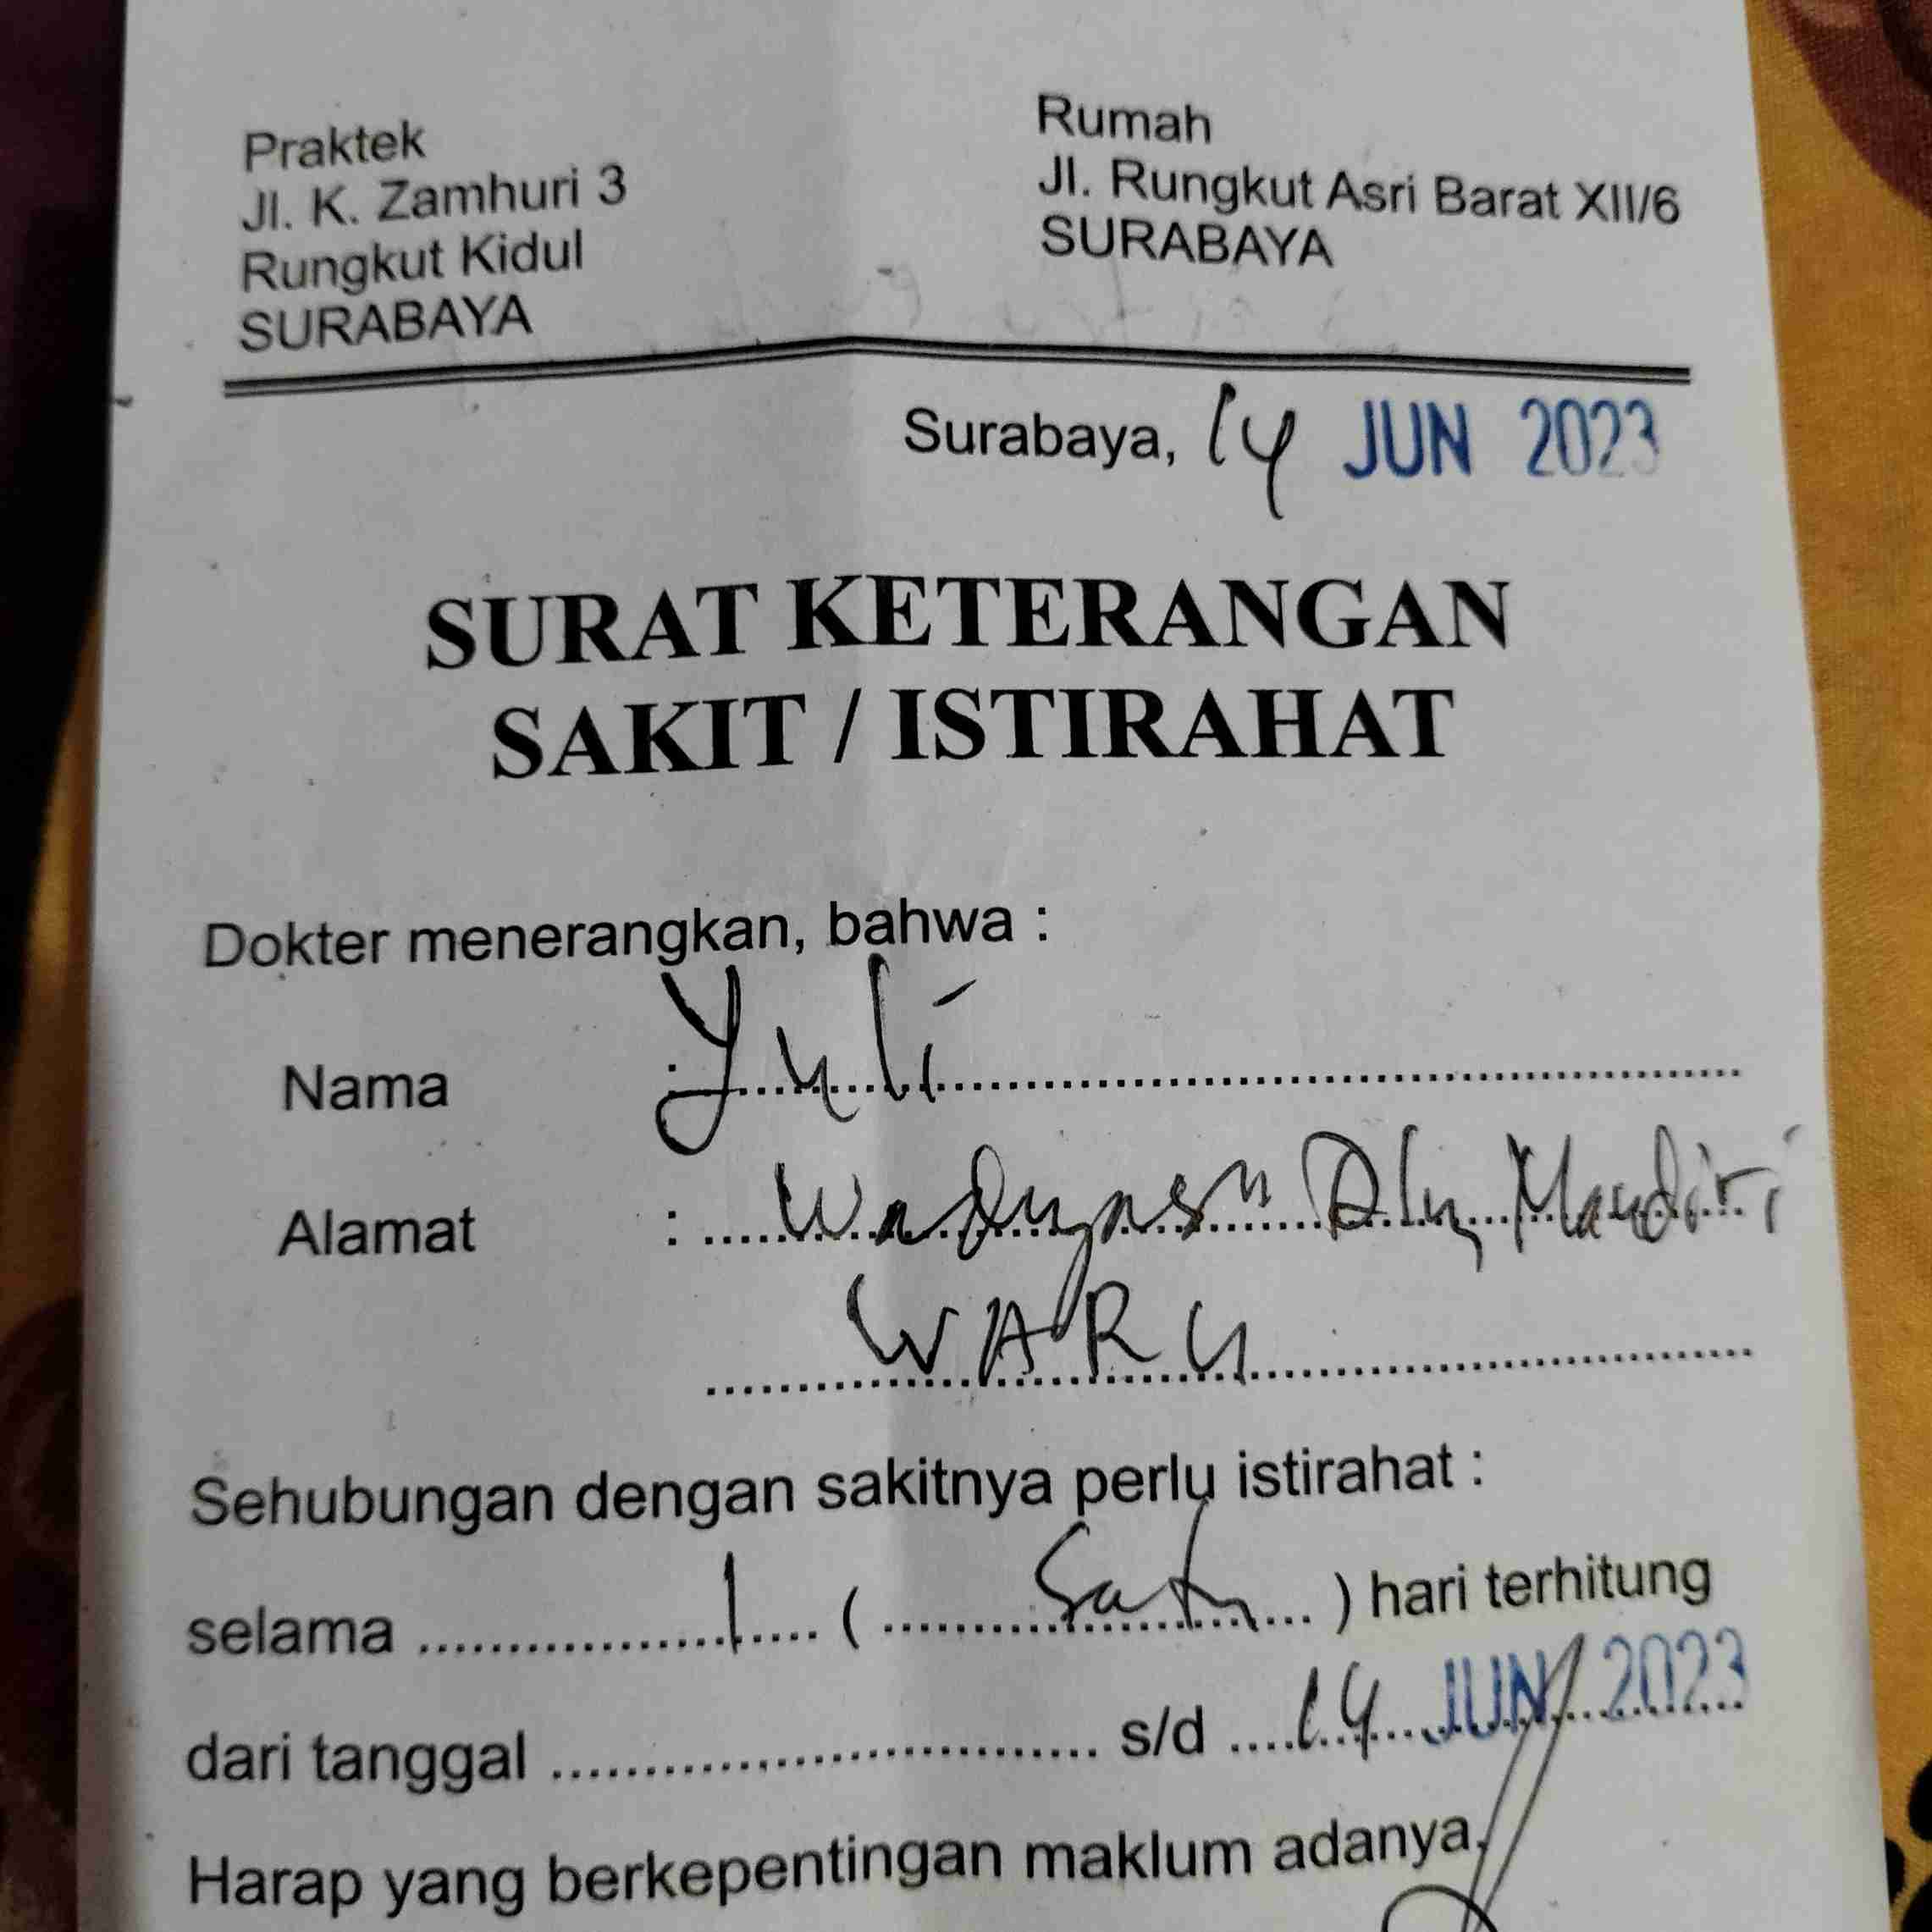 Praktek
Jl. K. Zamhuri 3
Rungkut Kidul
SURABAYA
Rumah
Jl. Rungkut Asri Barat XII/6
SURABAYA
Surabaya, 14 JUN 2023
SURAT KETERANGAN
SAKIT / ISTIRAHAT
Dokter menerangkan, bahwa :
Nama : Yuli
Alamat : Mandiri
WARU
Sehubungan dengan sakitnya perlu istirahat :
selama 1 ( Satu ) hari terhitung
dari tanggal s/d 14 JUN 2023
Harap yang berkepentingan maklum adanya.